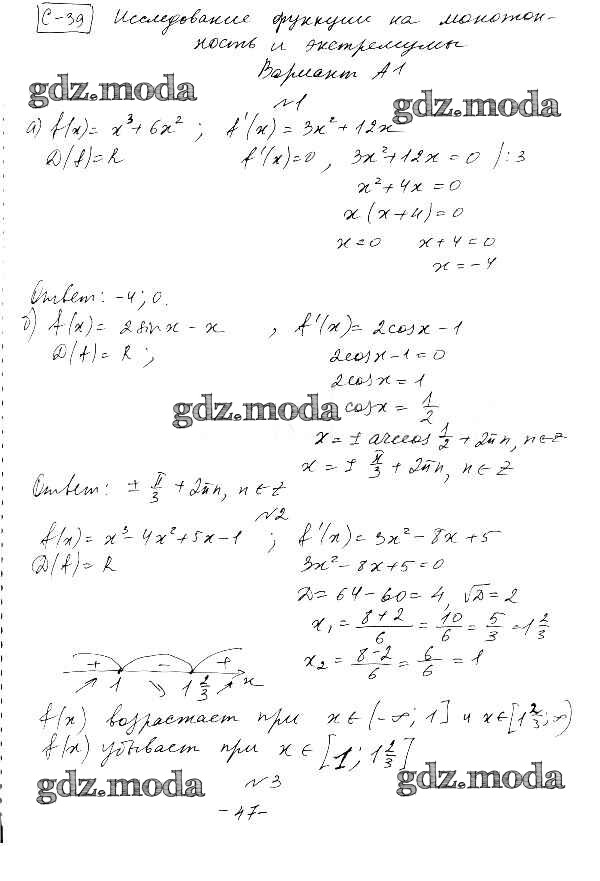 С-39 Исследование функции на монотон-
ность и экстремумы
Вариант А1
gdz.moda
gdz.moda
№1
а) f(x) = x³ + 6x² ; f'(x) = 3x² + 12x
D(f) = R f'(x) = 0, 3x² + 12x = 0 /:3
x² + 4x = 0
x(x + 4) = 0
x = 0 x + 4 = 0
x = -4
Ответ: -4; 0.
б) f(x) = 2 sin x - x , f'(x) = 2cos x - 1
D(f) = R ; 2cos x - 1 = 0
2cos x = 1
gdz.moda cos x = 1/2
x = ± arccos 1/2 + 2πn, n ∈ Z
x = ± π/3 + 2πn, n ∈ Z
Ответ: ± π/3 + 2πn, n ∈ Z
№2
f(x) = x³ - 4x² + 5x - 1 ; f'(x) = 3x² - 8x + 5
D(f) = R 3x² - 8x + 5 = 0
D = 64 - 60 = 4, √D = 2
x₁ = (8+2)/6 = 10/6 = 5/3 = 1 2/3
x₂ = (8-2)/6 = 6/6 = 1
+ - +
1 1 2/3 x
f(x) возрастает при x ∈ (-∞; 1] и x ∈ [1 2/3; ∞)
f(x) убывает при x ∈ [1; 1 2/3]
gdz.moda
gdz.moda
№3
-47-